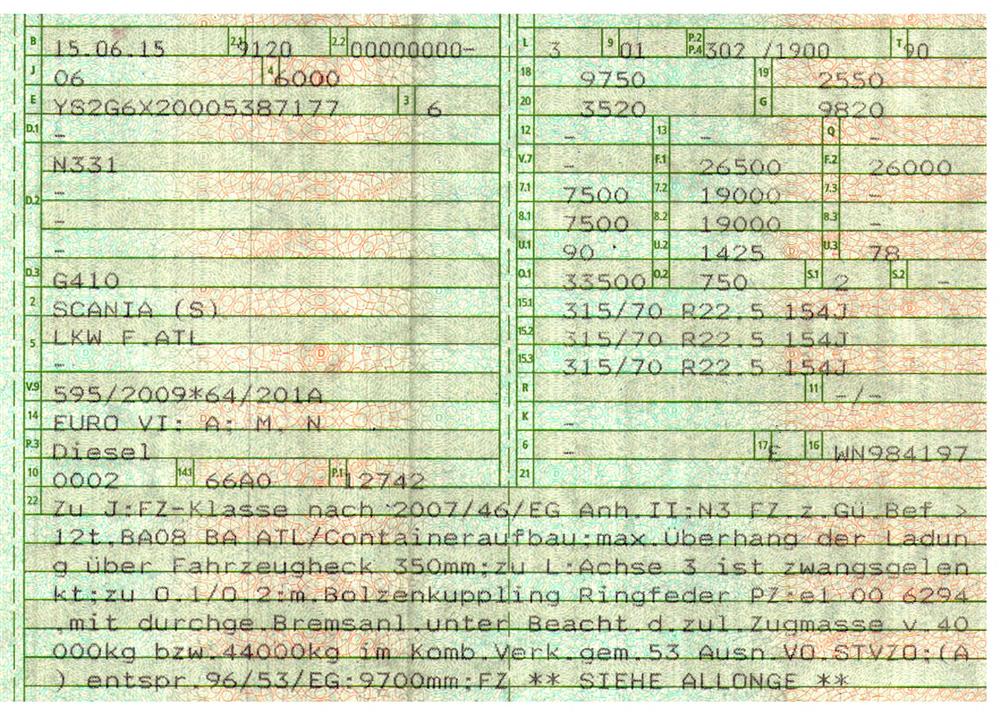 B 15.06.15 2.1 9120 2.2 00000000-
J 06 4 6000
E YS2G6X20005387177 3 6
D.1 -
N331
D.2 -
-
-
D.3 G410
2 SCANIA (S)
5 LKW F.ATL
-
V.9 595/2009*64/201A
14 EURO VI; A; M, N
P.3 Diesel
10 0002 14.1 66A0 P.1 12742
L 3 9 01 P.2 P.4 302 /1900 T 90
18 9750 19 2550
20 3520 G 9820
12 - 13 - Q -
V.7 - F.1 26500 F.2 26000
7.1 7500 7.2 19000 7.3 -
8.1 7500 8.2 19000 8.3 -
U.1 90 U.2 1425 U.3 78
O.1 33500 O.2 750 S.1 2 S.2 -
15.1 315/70 R22.5 154J
15.2 315/70 R22.5 154J
15.3 315/70 R22.5 154J
R 11 -/-
K -
6 - 17 E 16 WN984197
21
22 Zu J:FZ-Klasse nach 2007/46/EG Anh.II:N3 FZ.z.Gü.Bef.>
12t.BA08 BA ATL/Containeraufbau:max.Überhang der Ladun
g über Fahrzeugheck 350mm;zu L:Achse 3 ist zwangsgelen
kt;zu O.1/O.2:m.Bolzenkuppling Ringfeder PZ:e1 00 6294
,mit durchge.Bremsanl.unter Beacht.d.zul.Zugmasse v.40
000kg bzw.44000kg im Komb.Verk.gem.53 Ausn.VO.STVZO;(A
) entspr.96/53/EG:9700mm;FZ ** SIEHE ALLONGE **